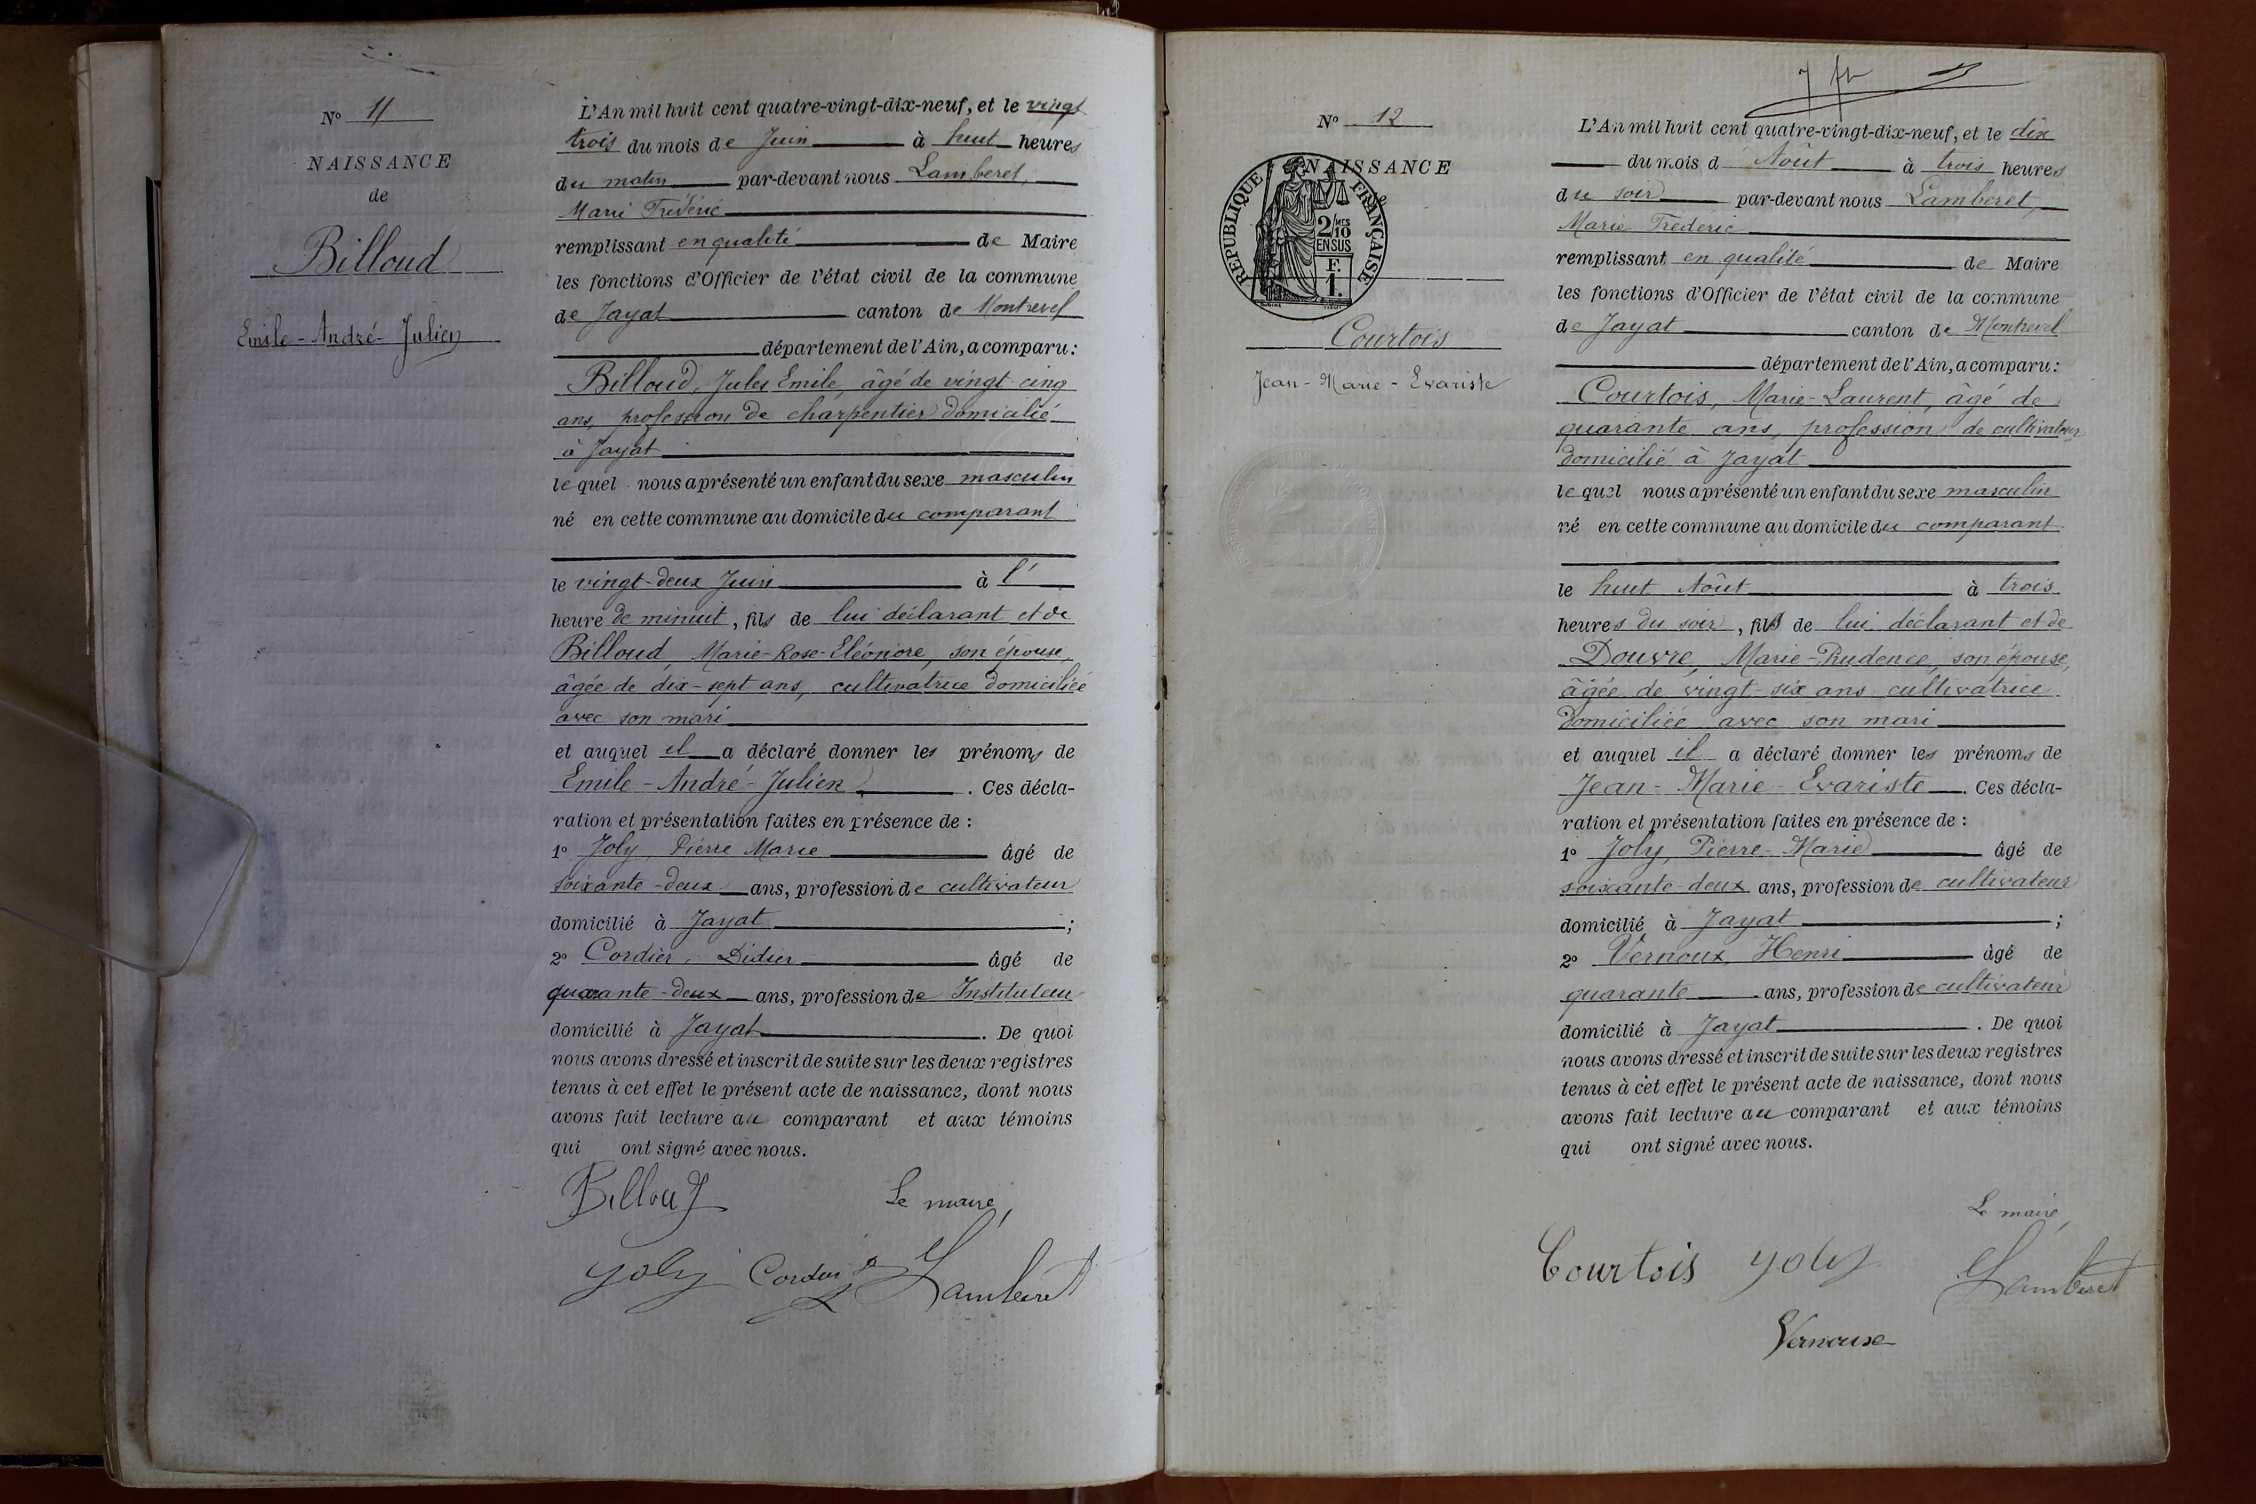 N° 11
NAISSANCE
de
Billoud
Emile-André-Julien
L'An mil huit cent quatre-vingt-dix-neuf, et le vingt
trois du mois de Juin à huit heures
du matin par-devant nous Lamberet,
Marie Frédéric
remplissant en qualité de Maire
les fonctions d'Officier de l'état civil de la commune
de Jayat canton de Montrevel
département de l'Ain, a comparu :
Billoud, Jules Emile, âgé de vingt-cinq
ans, profession de charpentier domicilié
à Jayat
lequel nous a présenté un enfant du sexe masculin
né en cette commune au domicile du comparant
le vingt-deux Juin à l'
heure de minuit, fils de lui déclarant et de
Billoud, Marie-Rose-Eléonore, son épouse,
âgée de dix-sept ans, cultivatrice domiciliée
avec son mari
et auquel il a déclaré donner les prénoms de
Emile-André-Julien. Ces décla-
ration et présentation faites en présence de :
1° Joly, Pierre Marie âgé de
soixante-deux ans, profession de cultivateur
domicilié à Jayat ;
2° Cordier, Didier âgé de
quarante-deux ans, profession de Instituteur
domicilié à Jayat. De quoi
nous avons dressé et inscrit de suite sur les deux registres
tenus à cet effet le présent acte de naissance, dont nous
avons fait lecture au comparant et aux témoins
qui ont signé avec nous.
Billoud Le maire,
Joly Cordier Lamberet
N° 12
NAISSANCE
RÉPUBLIQUE FRANÇAISE
2/10 MES
EN SUS
F.
1.
Courtois
Jean-Marie-Evariste
L'An mil huit cent quatre-vingt-dix-neuf, et le dix
du mois d Août à trois heures
du soir par-devant nous Lamberet,
Marie Frédéric
remplissant en qualité de Maire
les fonctions d'Officier de l'état civil de la commune
de Jayat canton de Montrevel
département de l'Ain, a comparu :
Courtois, Marie-Laurent, âgé de
quarante ans, profession de cultivateur
domicilié à Jayat
lequel nous a présenté un enfant du sexe masculin
né en cette commune au domicile du comparant
le huit Août à trois
heures du soir, fils de lui déclarant et de
Douvre, Marie-Prudence, son épouse,
âgée de vingt-six ans cultivatrice
domiciliée avec son mari
et auquel il a déclaré donner les prénoms de
Jean-Marie-Evariste. Ces décla-
ration et présentation faites en présence de :
1° Joly, Pierre-Marie âgé de
soixante-deux ans, profession de cultivateur
domicilié à Jayat ;
2° Vernoux, Henri âgé de
quarante ans, profession de cultivateur
domicilié à Jayat. De quoi
nous avons dressé et inscrit de suite sur les deux registres
tenus à cet effet le présent acte de naissance, dont nous
avons fait lecture au comparant et aux témoins
qui ont signé avec nous.
Le maire,
Courtois Joly Lamberet
Vernoux